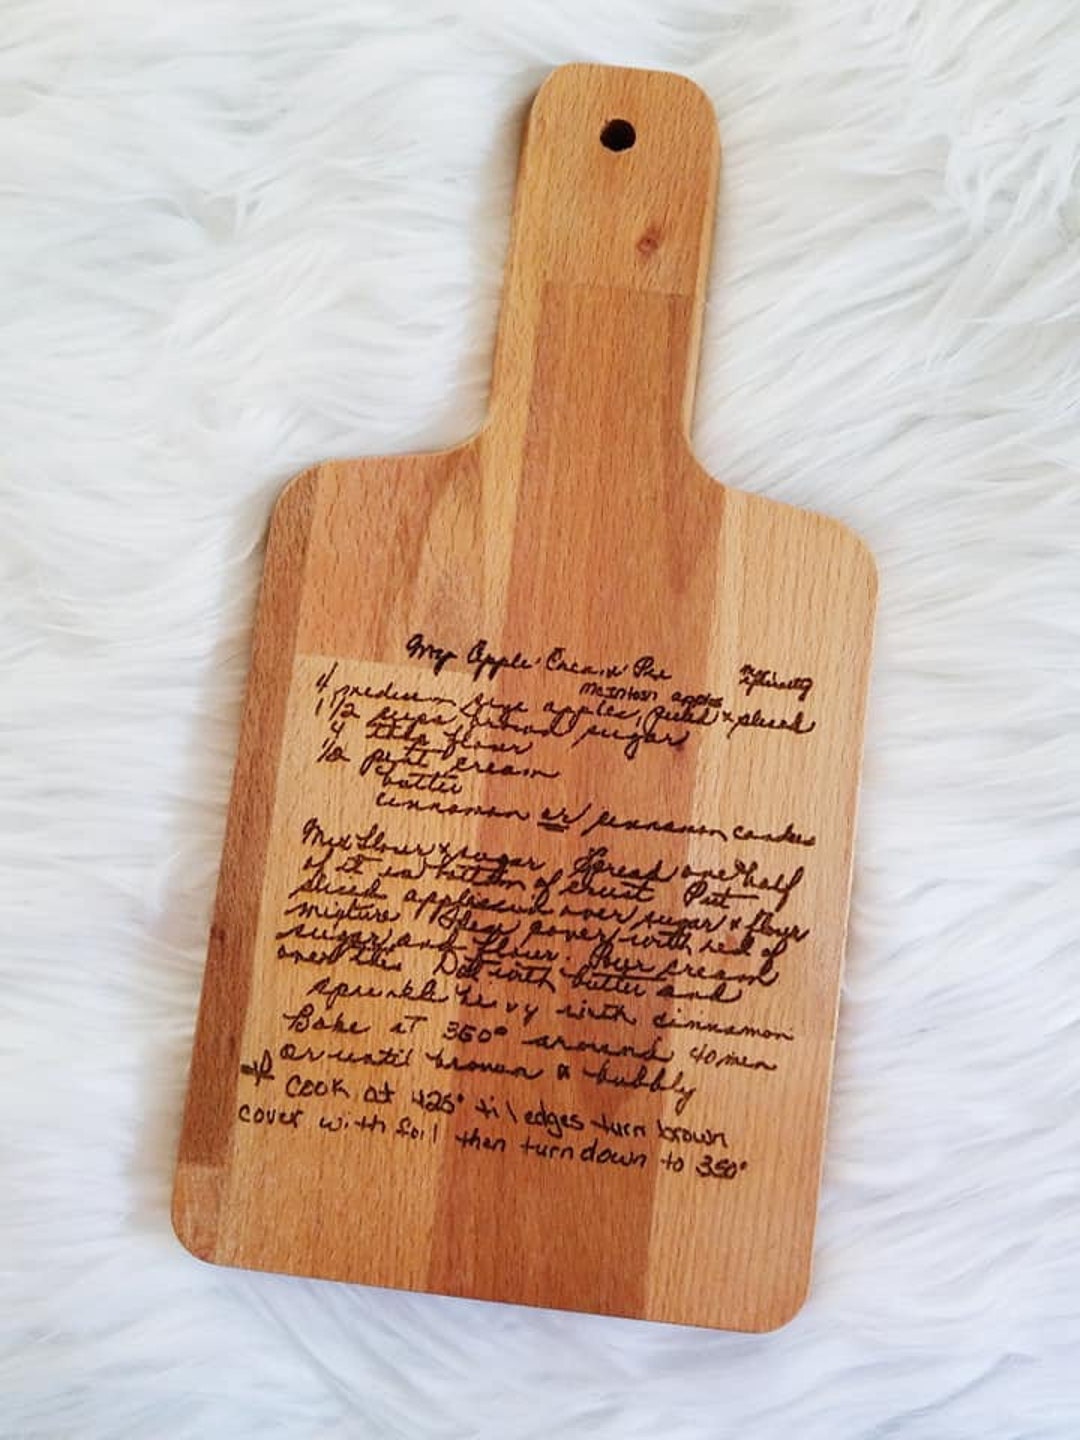 My Apple Cream Pie
McIntosh apples
4 medium size apples, peeled + sliced
1 1/2 cups brown sugar
4 tbls flour
1/2 pint cream
butter
cinnamon or cinnamon candies
Mix flour & sugar Spread one half
of it in bottom of crust Put
sliced apples over sugar & flour
mixture Then cover with rest of
sugar and flour. Pour cream
over this Dot with butter and
sprinkle heavy with cinnamon
Bake at 350° around 40 min
or until brown & bubbly
Cook at 425° til edges turn brown
cover with foil then turn down to 350°